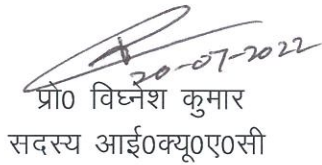 20-07-2022
प्रो0 विघ्नेश कुमार
सदस्य आई0क्यू0ए0सी